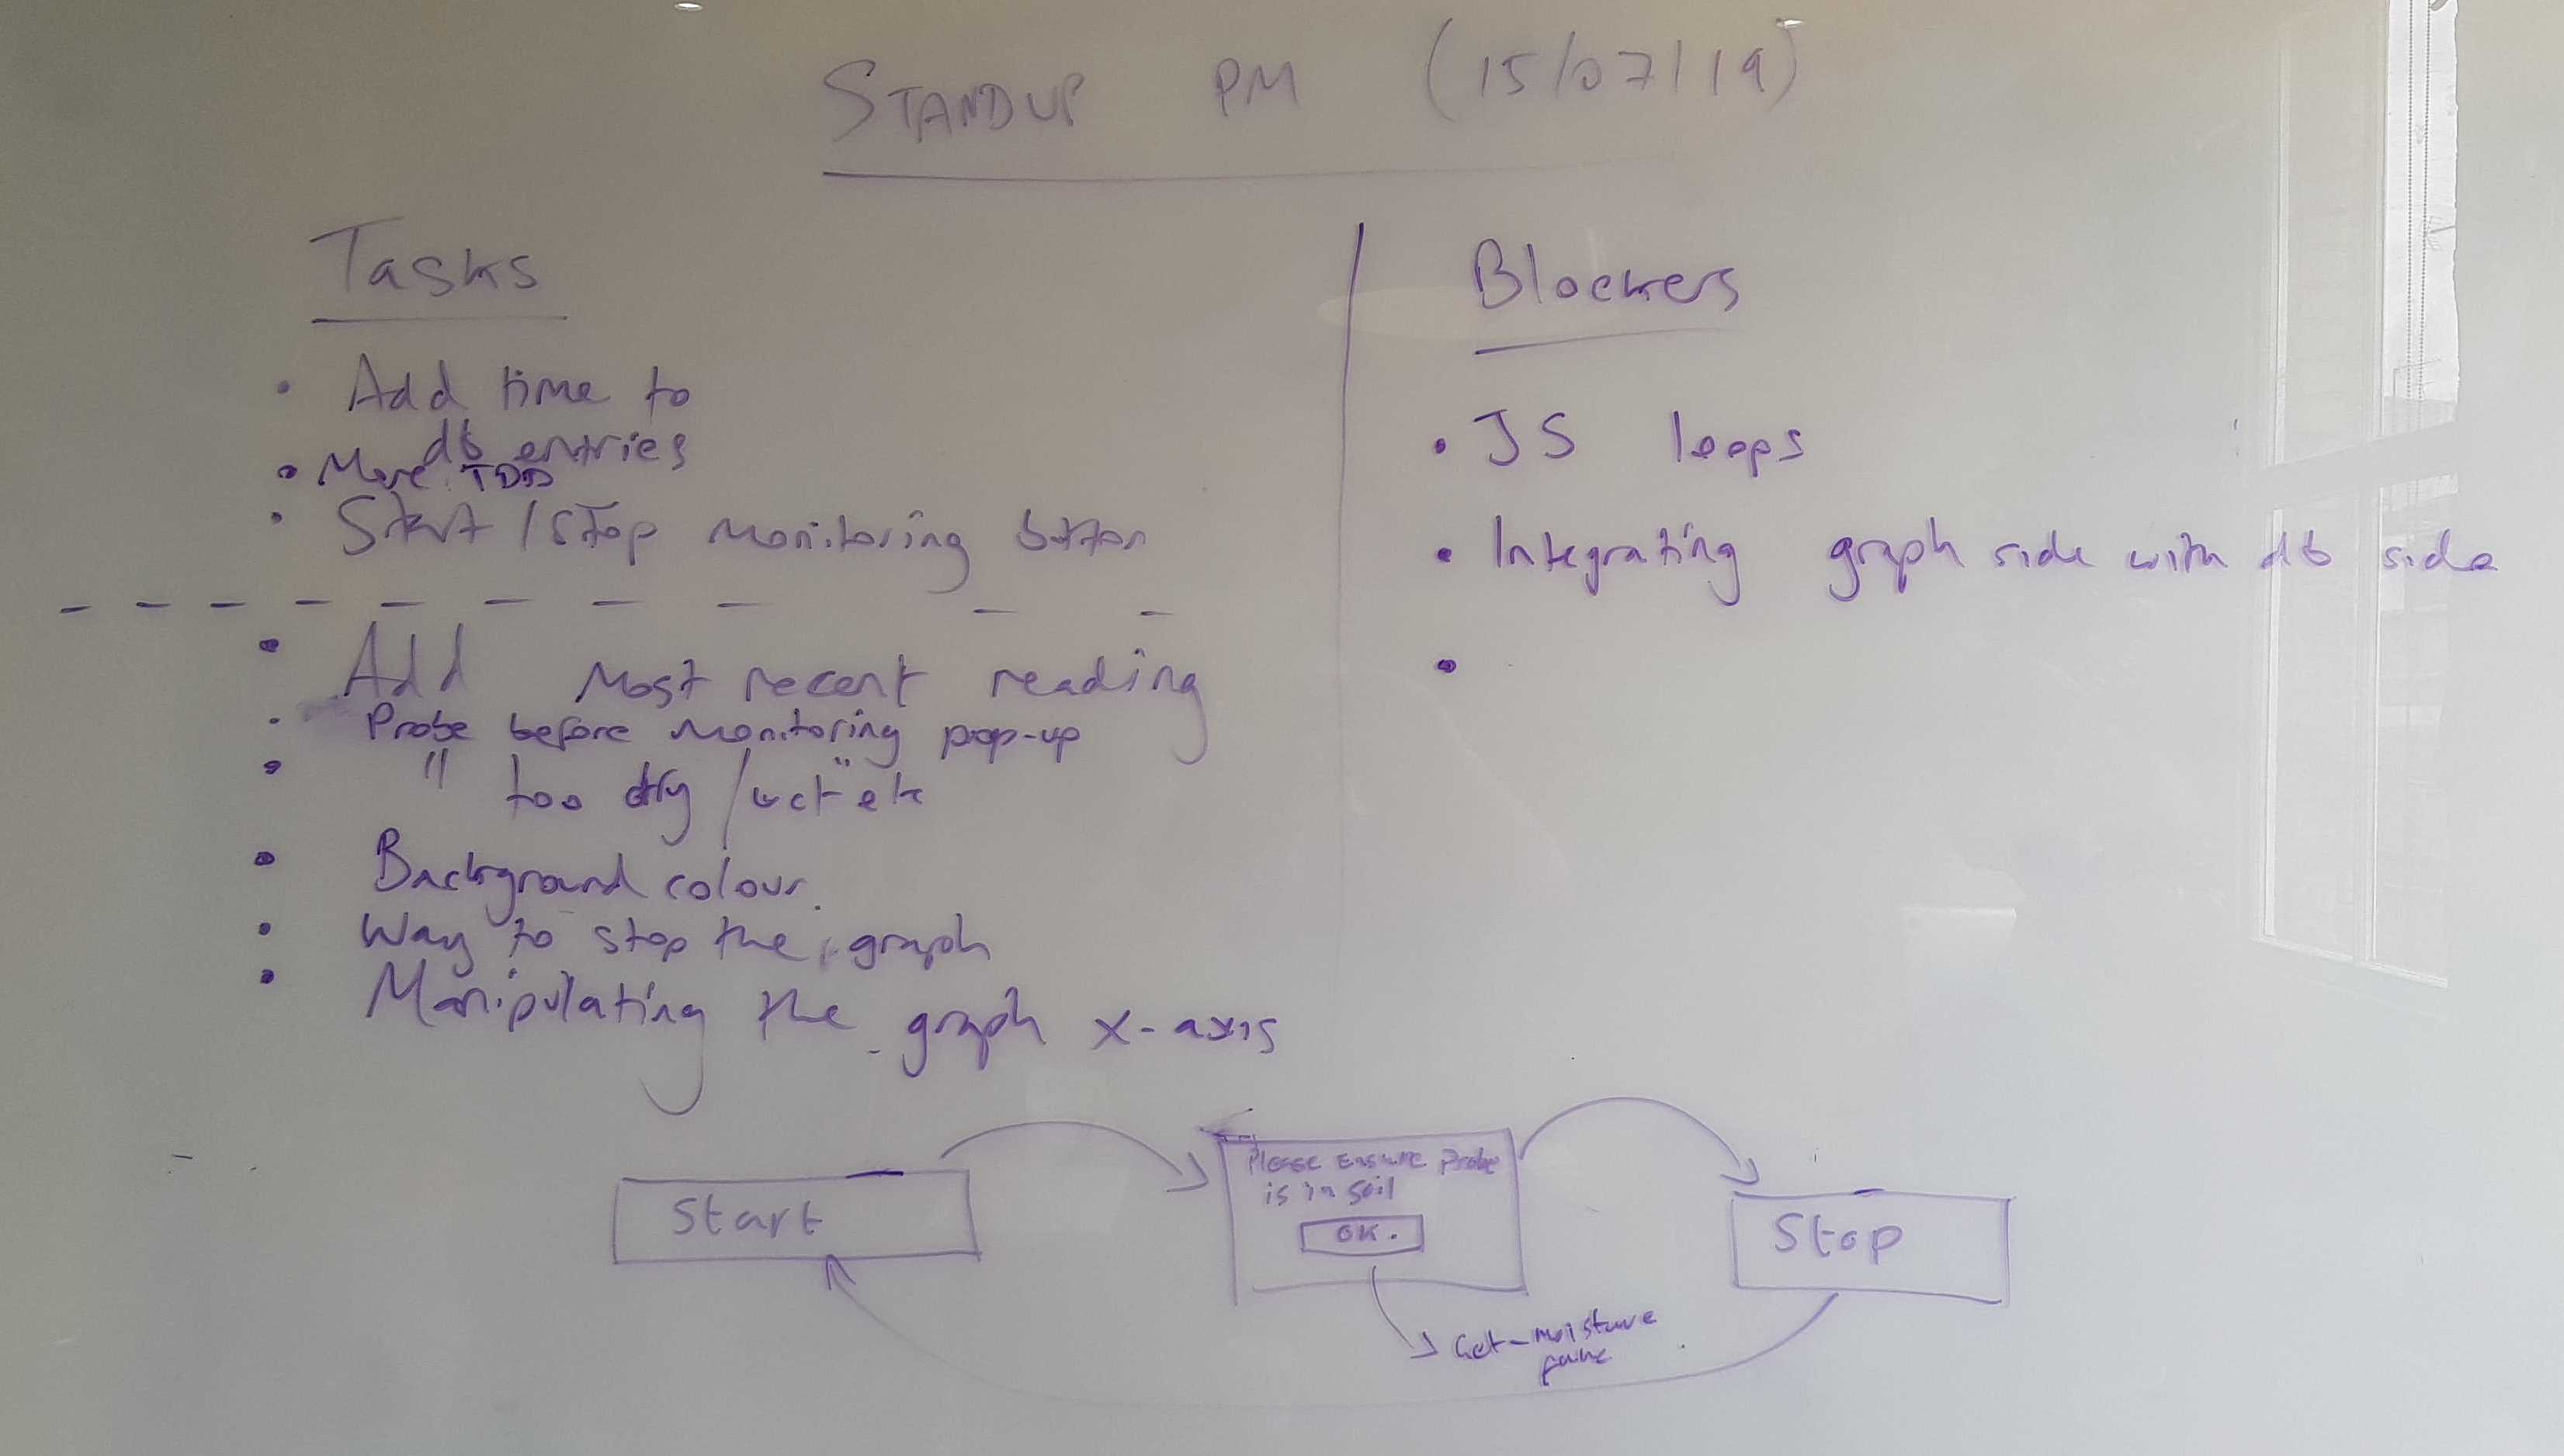 STANDUP PM (15/07/19)
Tasks
• Add time to
db entries
• More TDD
• Start / Stop monitoring button
• Add most recent reading
• Probe before monitoring pop-up
• " too dry / wet" etc
• Background colour.
• Way to stop the graph
• Manipulating the graph x-axis
Blockers
• JS loops
• Integrating graph side with db side
•
Start
Please ensure probe
is in soil
OK.
Stop
Get-moisture
func